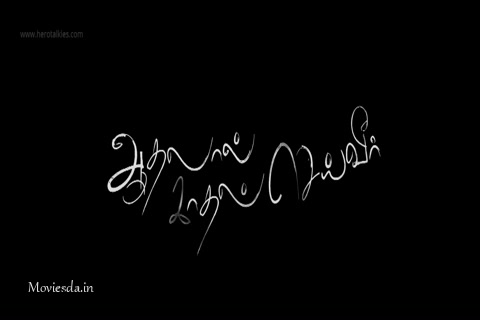 www.herotalkies.com
ஆதலால்
காதல் செய்வீர்
Moviesda.in